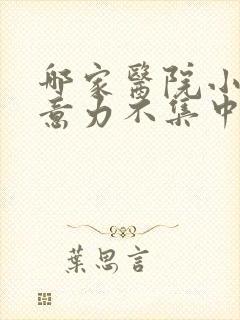 哪家醫院小
意力不集中
葉思言